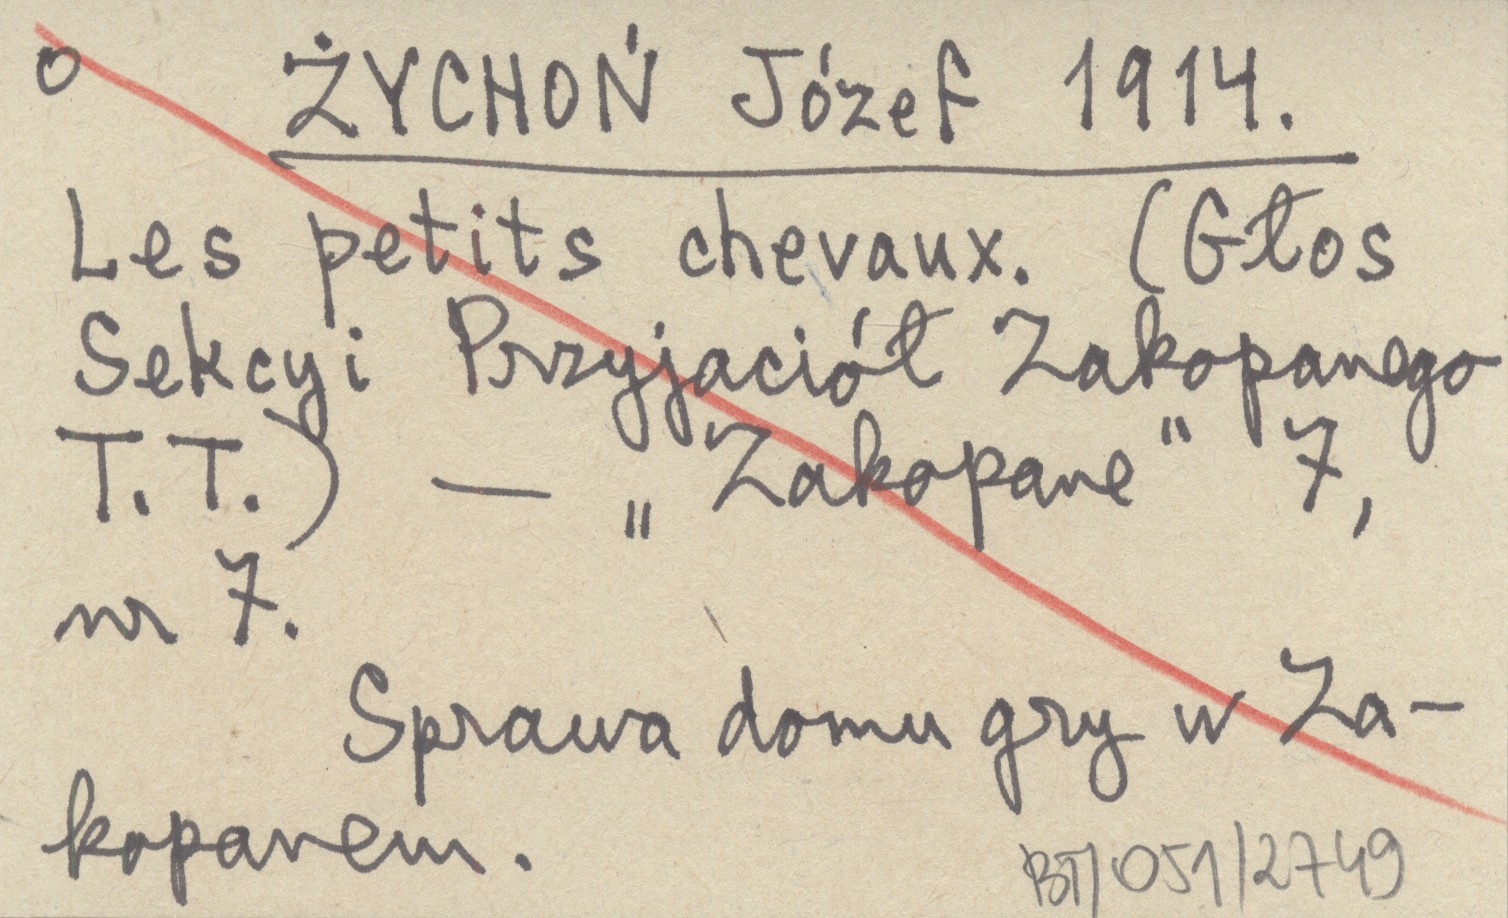 o ŻYCHOŃ Józef 1914.
Les petits chevaux. (Głos
Sekcyi Przyjaciół Zakopanego
T.T.) — „Zakopane" 7,
nr 7.
Sprawa domu gry w Za-
kopanem.
BT/051/2749